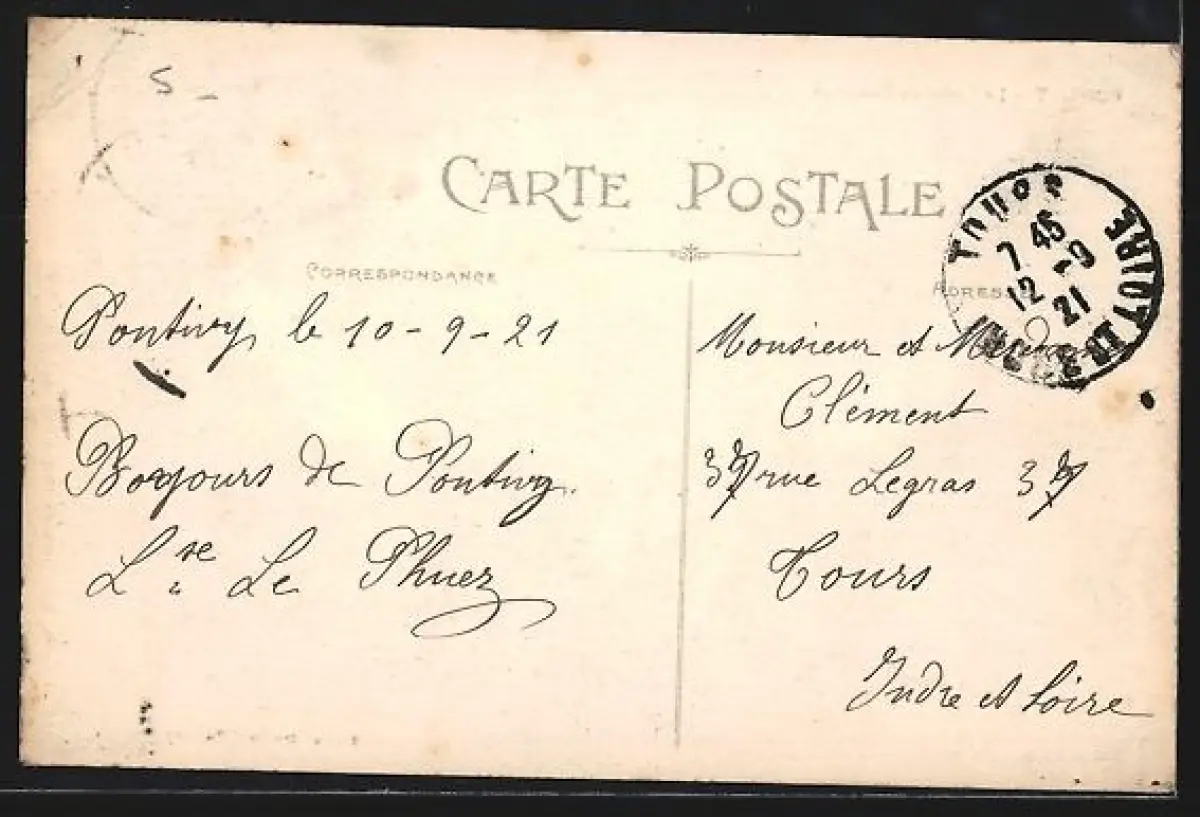 5 -
CARTE POSTALE
CORRESPONDANCE
Pontivy le 10-9-21
Bonjours de Pontivy.
Lse Le Phuez
ADRESSE
Monsieur et Madame
Clément
37 rue Legras 37
Tours
Indre et Loire
TOURS
7 45
12 - 9
21
INDRE ET LOIRE